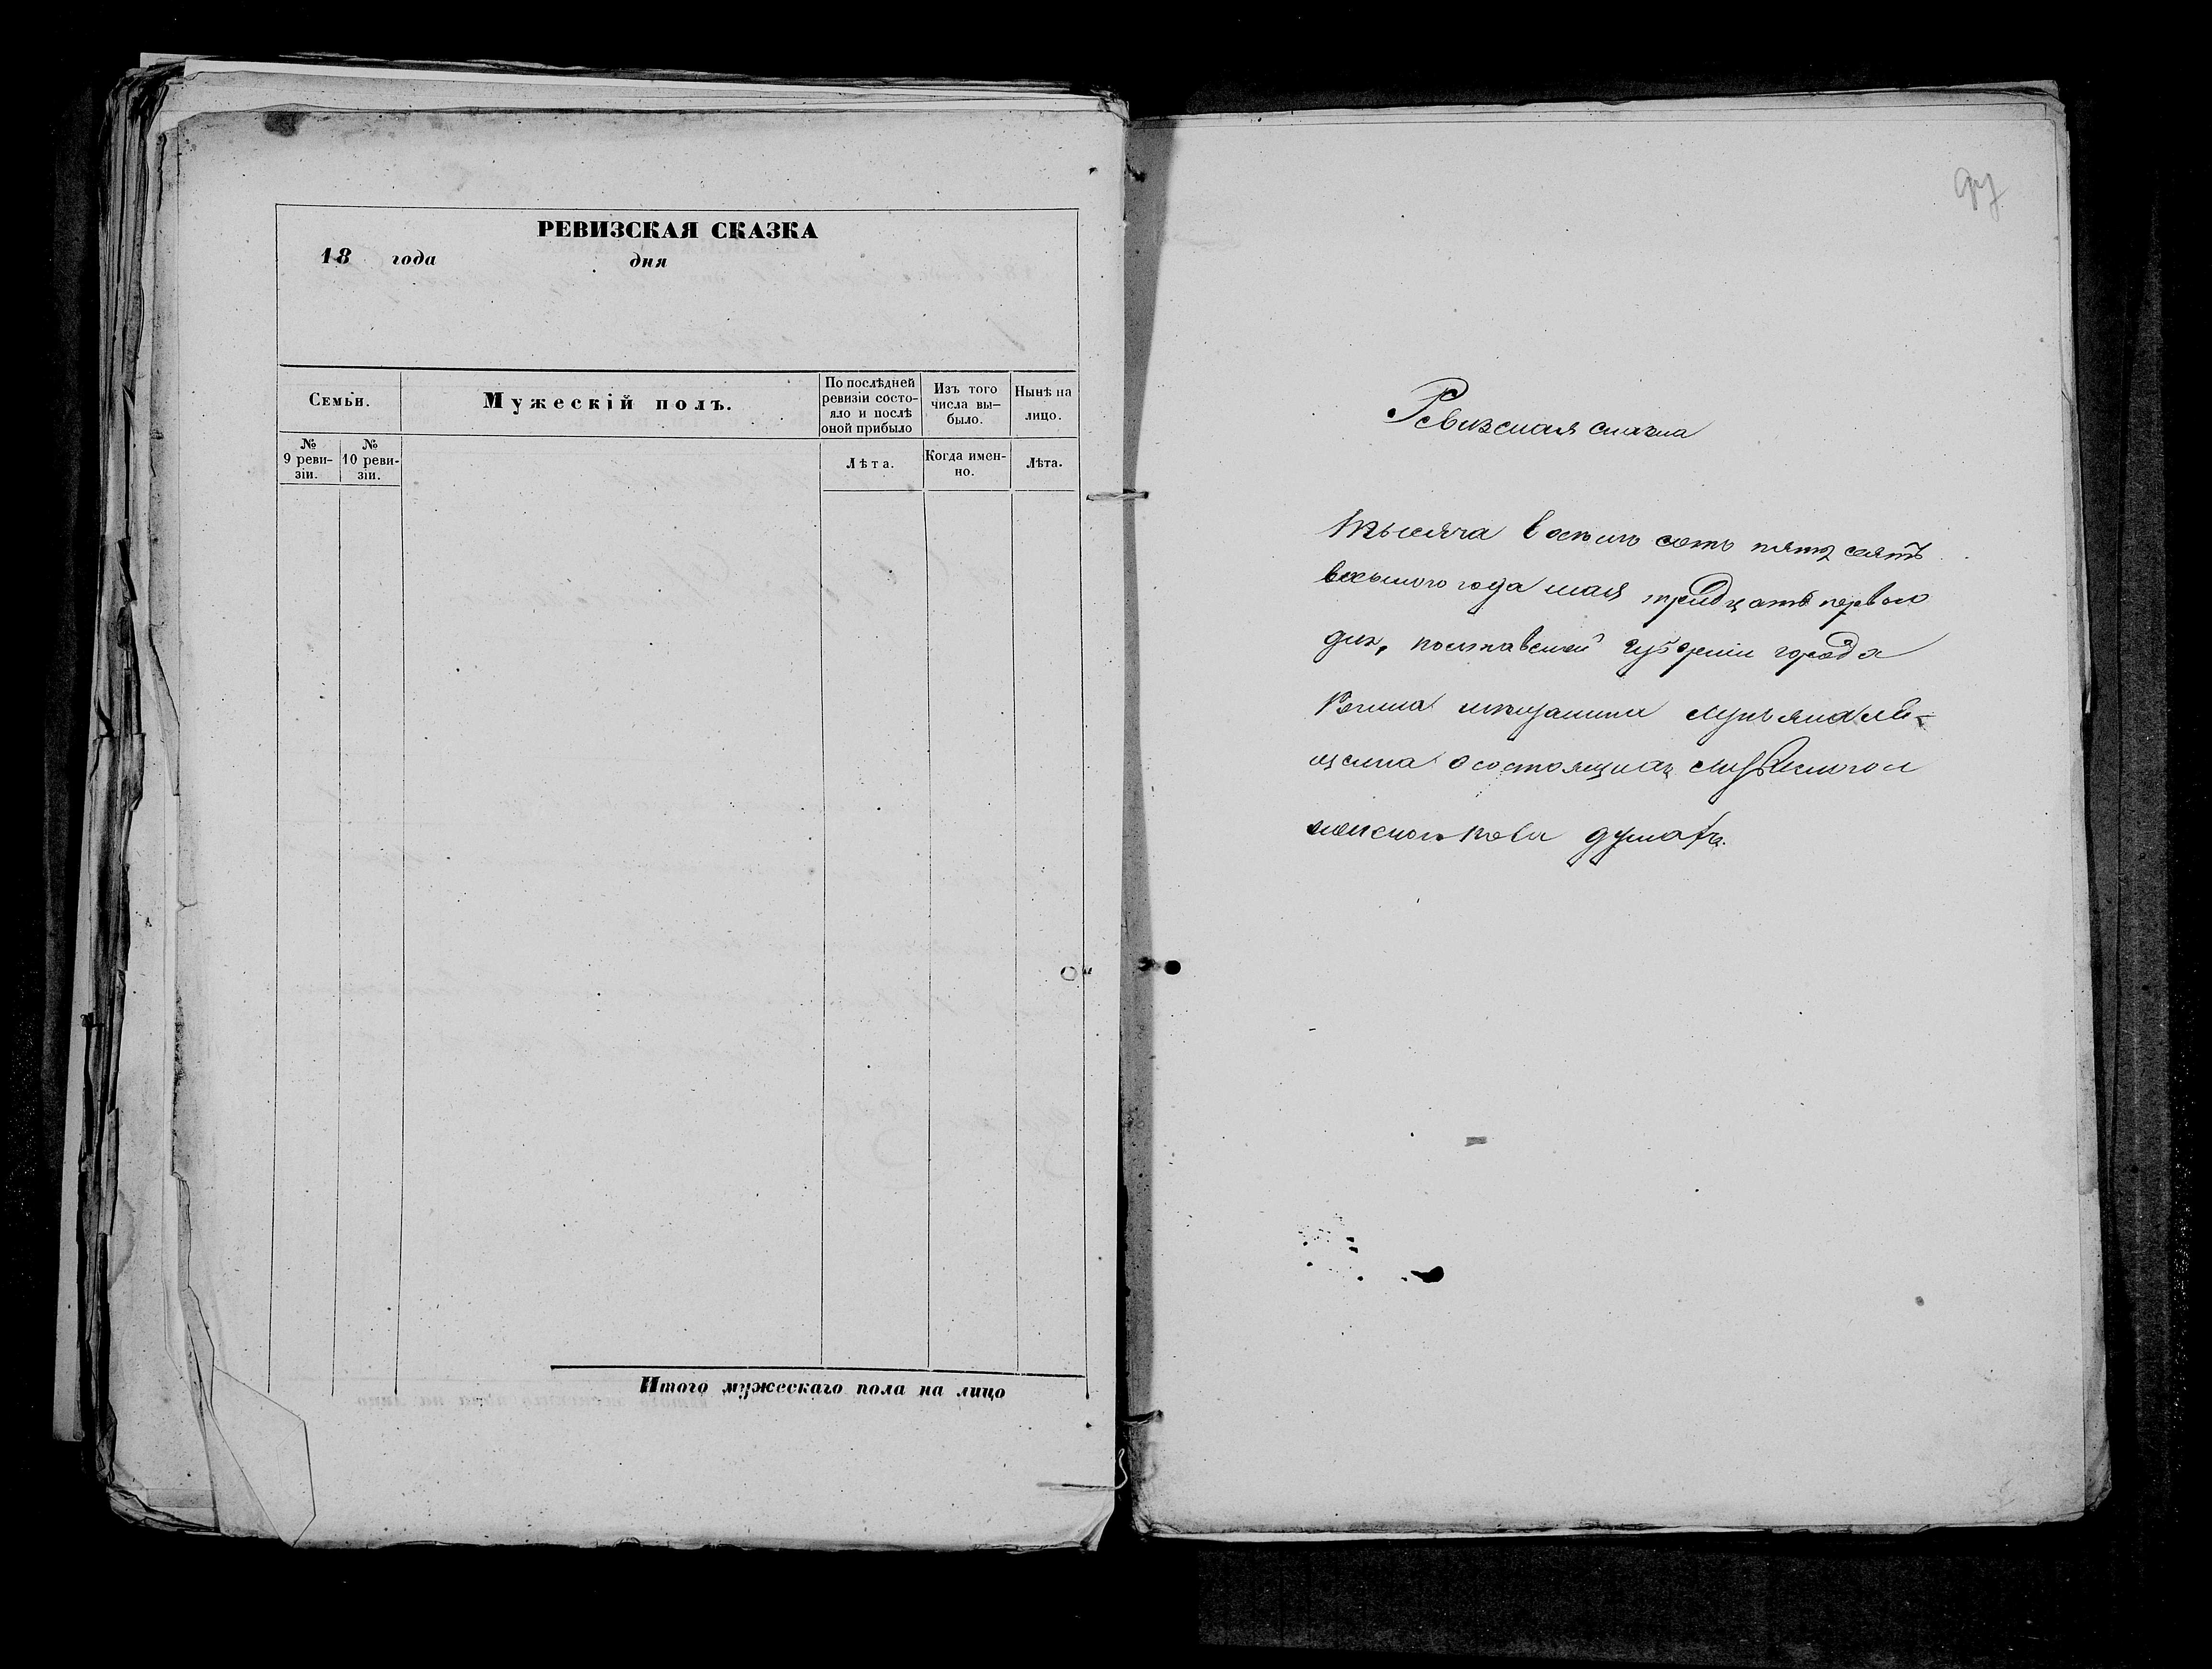 РЕВИЗСКАЯ СКАЗКА
18 года дня
Семьи.
Мужескій полъ.
По послѣдней
ревизіи состо-
яло и послѣ
оной прибыло
Изъ того
числа вы-
было.
Нынѣ на
лицо.
№
9 реви-
зіи.
№
10 реви-
зіи.
Лѣта.
Когда имен-
но.
Лѣта.
Итого мужескаго пола на лицо
Ревизская сказка
Тысяча восемь сотъ пятдесятъ
восьмого года мая тридцать первого
дня, полтавской губерніи города
мещанина
о состоящихъ мужескогои
женского пола душахъ.